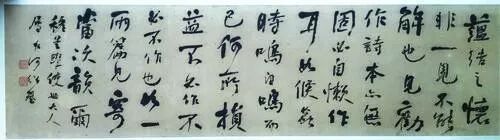 蘊結之懷
非一見不能
解也見勸
作詩本亦無
固必自懶作
耳如候蟲
時鳴自鳴而
已何所損
益不必作不
必不作也以一
兩篇見寄
當次韻爾
大人
屬 何紹基